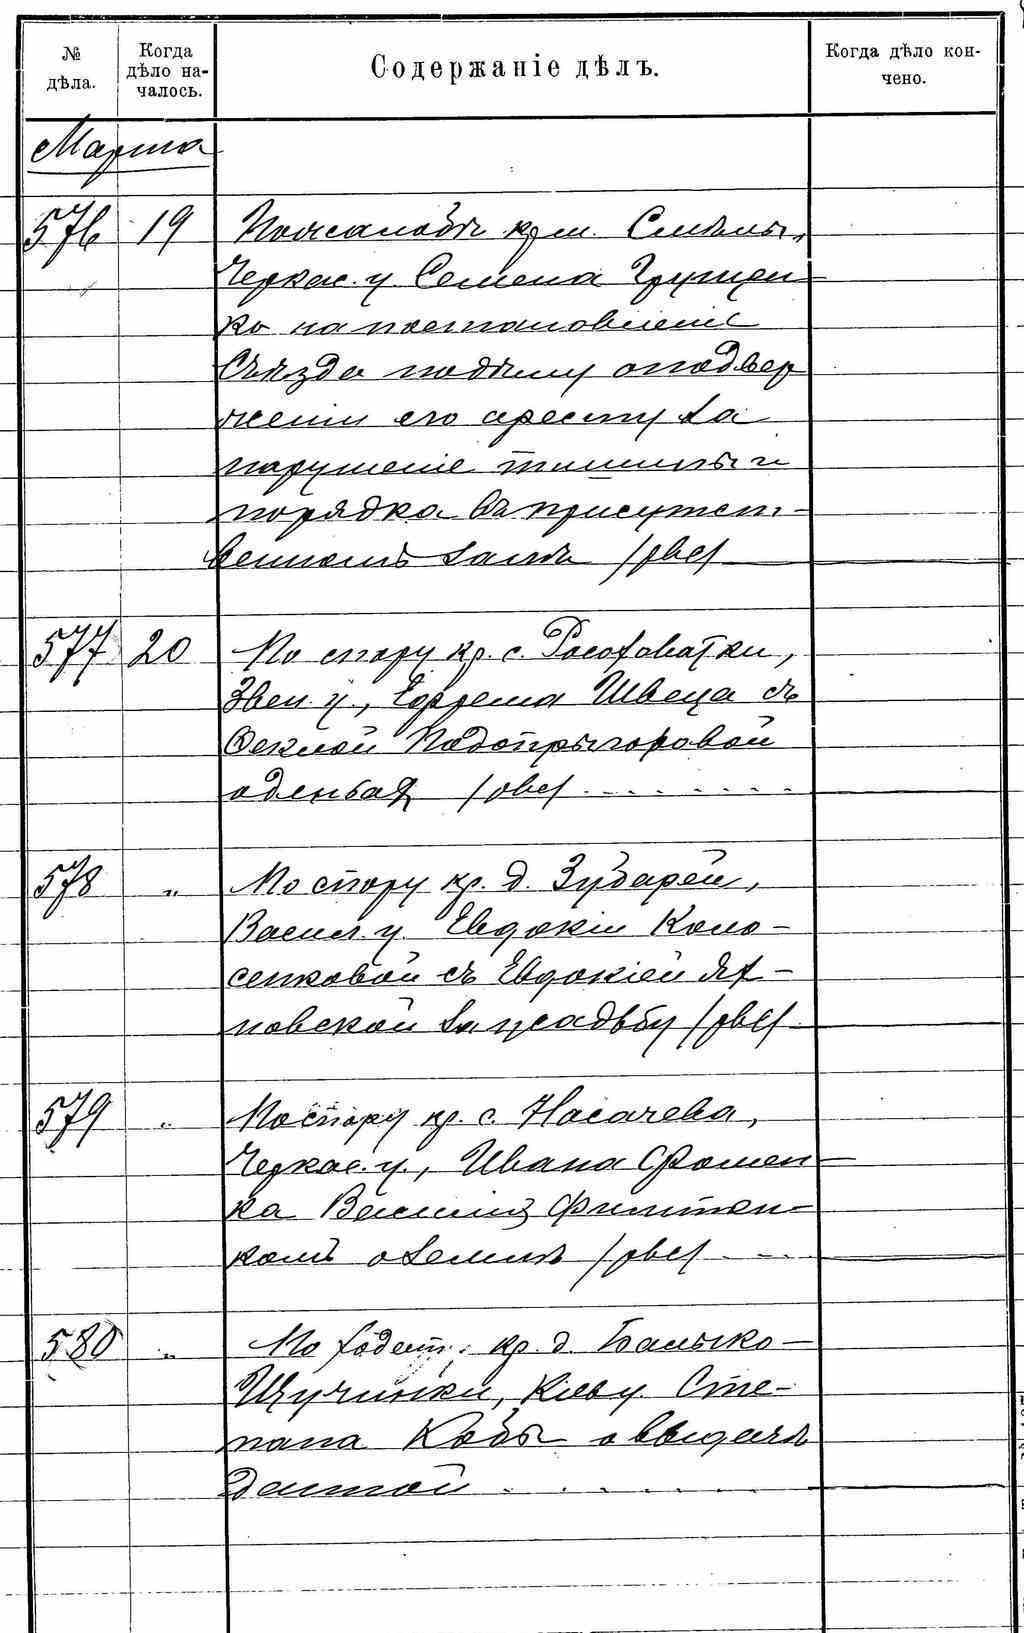 № дѣла.
Когда дѣло на-
чалось.
Содержаніе дѣлъ.
Когда дѣло кон-
чено.
Марта
576 19 По жалобѣ кр. м. Смѣлы,
Черкас. у. Семена Грущен-
ко на постановленіе
Съѣзда по дѣлу о подвер
женіи его аресту за
нарушеніе тишины и
порядка въ присутст-
венномъ залѣ
577 20 По спору кр. с. Рософоватки,
Звен. у., Ефрема Швеца съ
Феклой Подопрыгоровой
о деньгах
578 " По спору кр. д. Зубарей,
Васил. у. Евдокіи Коло-
сенковой съ Евдокіей Ях-
новской за усадьбу
579 " По спору кр. с. Носачева,
Черкас. у., Ивана Фомен-
ка Василиз Филипен-
комъ о землѣ
580 " По ходат. кр. д. Балыко-
Щучинки, Кіев у. Сте-
пана Кобы о выдачѣ
данной